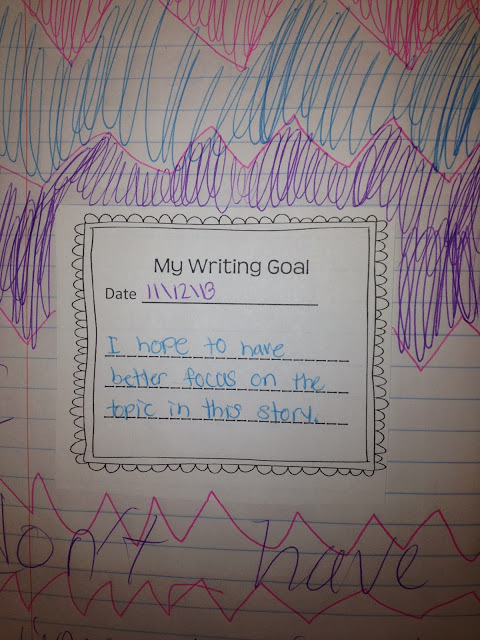 My Writing Goal
Date 11\12\13
I hope to have
better focus on the
topic in this story.
have